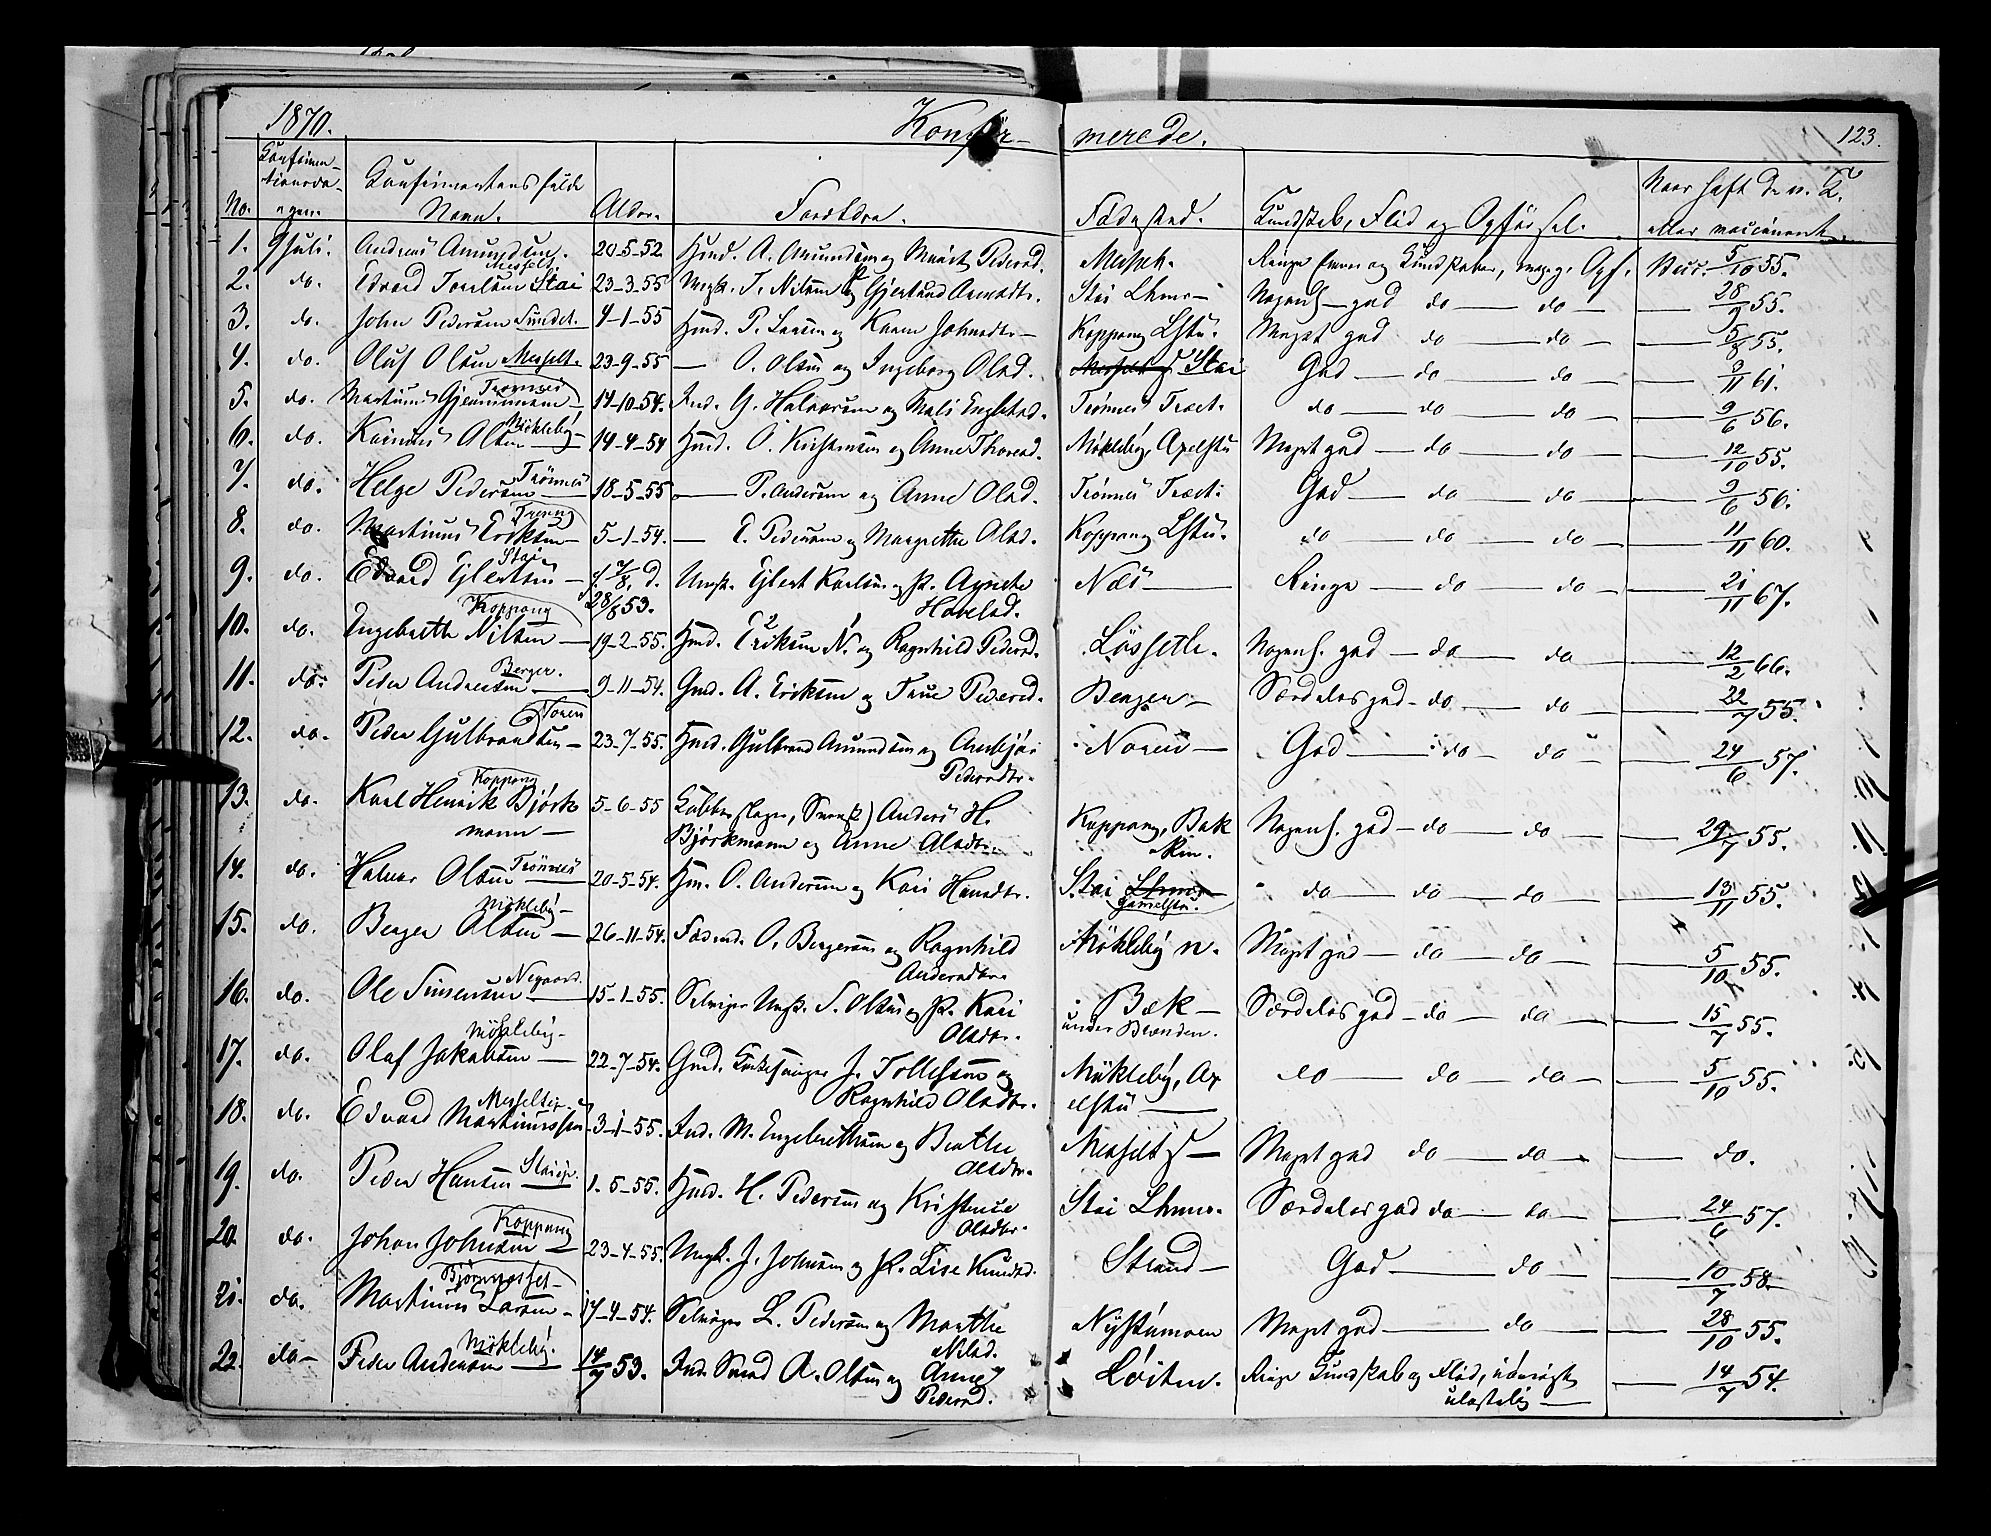 1870. Konfir-
merede. 123.
No. Konfirma-
tionsda-
gen. Konfirmantens fulde
Navn. Alder. Forældre. Fødested. Kundskab, Flid og Opførsel. Naar haft d. n. K.
eller vaccineret.
1. 9 Juli. Andreas Amundsen. 20-5-52 Gmd. A. Amundsen og Marit Pedersd. Messelt. Ringe Evner og Kundskaber, meg. g. Opf. Vacc. 5/10 55.
2. do. Edvard Torelsen Messelt Stai 23-3-55 Ungk. T. Nilsen og P. Gjertrud Arnesdtr. Stai Lhmo- Nogenl. god do do 28/9 55.
3. do. John Pedersen Sundet. 4-1-55 Hmd. P. Larsen og Karen Johnsdtr. Koppang Lstu. Meget god do do 5/8 55.
4. do. Oluf Olsen Messelt. 23-9-55 O. Olsen og Ingeborg Olsd. Stai God do do 3/11 61.
5. do. Martinus Gjermunsen Trønnes 14-10-54. Ind. G. Halvorsen og Mali Englebsd. Trønnes Træet. do do do 9/6 56.
6. do. Kainus Olsen Møkleby 14-4-54 Hmd. O. Kristensen og Anne Thoresd. Møkleby, Apelstu Meget god do do 12/10 55.
7. do. Helge Pedersen Trønnes 18-5-55 P. Andersen og Anne Olsd. Trønnes Træet. God do do 9/6 56.
8. do. Martinus Eriksen 5-1-54. E. Pedersen og Margrethe Olsd. Koppang Lstu. do do do 11/11 60.
9. do. Edvard Ejlertsen Stai f. 7/8, d.
28/8 53. Ungk. Ejlert Karlsen og P. Agnethe
Hovelsd. Næs Ringe do do 21/11 67.
10. do. Ingebreth Nilsen Koppang 19-2-55. Hmd. Eriksen N. og Ragnhild Pedersd. Løssetle. Nogenl. god do do 12/2 66.
11. do. Peder Andersen Berger. 9-11-54. Gmd. A. Eriksen og Pedersd. Berger Særdeles god do do 22/7 55.
12. do. Peder Gulbrandsen Noren 23-7-55. Hmd. Gulbrand Amundsen og Ambjør
Pedersdtr. Noren God do do 24/6 57.
13. do. Karl Henrik Bjørk
mann Koppang 5-6-55 Kobberslager, Svensk) Anders H.
Bjørkmann og Anne Olsdtr. Koppang, Bak
Nogenl. god do do 29/7 55.
14. do. Halvor Olsen Trønnes 20-5-54. Hm. O. Andersen og Kari Hansdtr. Stai Lhmo
Gamelstu. do do do 13/11 55.
15. do. Berger Olsen Møkleby 26-11-54. O. Bergersen og Ragnhild
Andersdtr. Møkleby n. Meget god do do 5/10 55.
16. do. Ole Simensen Negaard. 15-1-55. Selveier Ungk. S. Olsen og P. Kari
Olsdtr. Bæk
under Brænden. Særdeles god do do 15/7 55.
17. do. Olaf Jakobsen Møkleby 22-7-54. Gmd. Kirkesanger J. Tollefsen og
Ragnhild Olsdtr. Møkleby, Ap
elstu do do do 5/10 55.
18. do. Edvard Martinussen 3-1-55. Ind. M. Engebrethsen og Beathe
Olsdtr. Messelt Meget god do do do.
19. do. Peder Hansen 1-5-55. Hmd. H. Pedersen og Kristense
Olsdtr. Stai Lhmo. Særdeles god do do 24/6 57.
20. do. Johan Johnsen Koppang 23-4-55. Ungk. J. Johnsen og P. Lise Knudsd. Strand God do 10/7 58.
21. do. Martinus Larsen 17-4-54. Selveier L. Pedersen og Marthe
Nilsd. Nystumoen Meget god do 28/10 55.
22. do Peder Andersen Møkleby. 14/7 53. Ind. Smed A. Olsen og Anne
Pedersd. Løiten. Ringe Kundskab og Flid, iøvrigt
ulastelig 14/7 54.